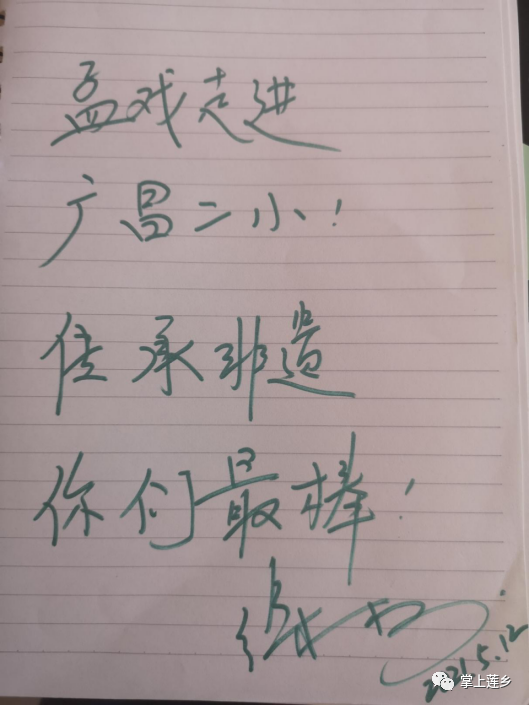 孟戏走进
广昌二小!
传承非遗
你们最棒!
2021.5.12
掌上莲乡